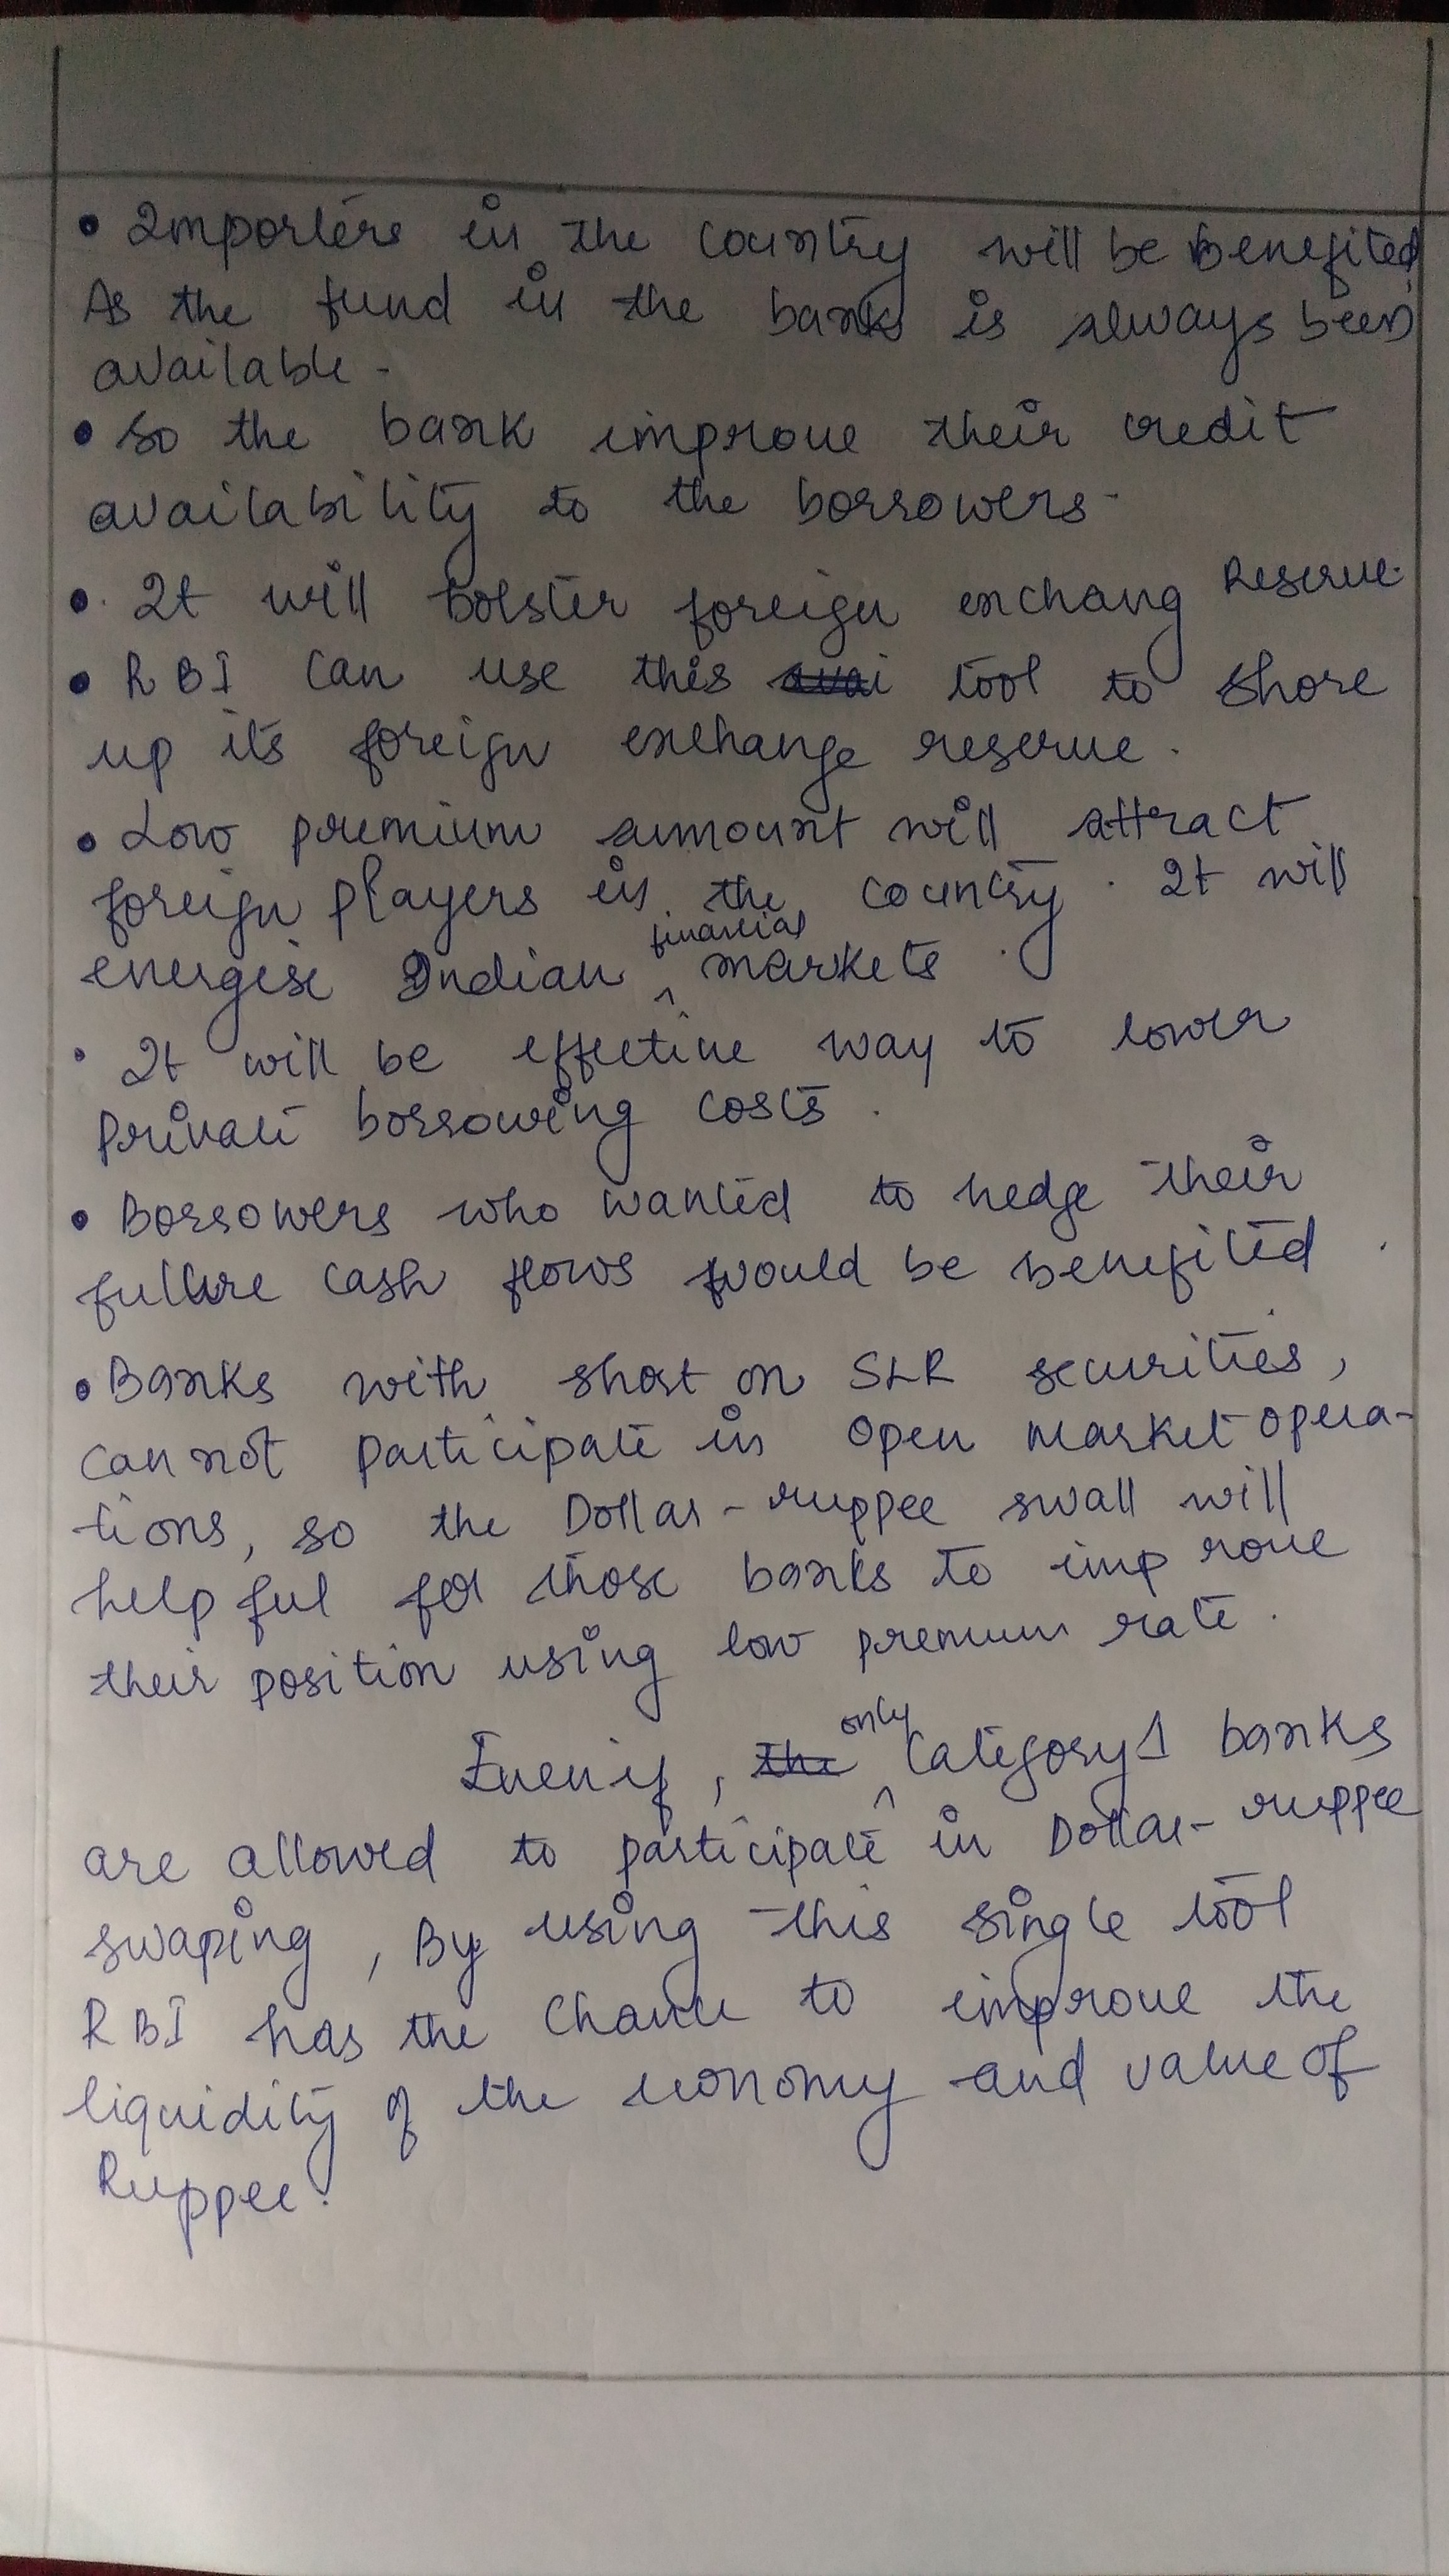 • Importers in the country will be benefited
As the fund in the banks is always been
available.
• So the bank improve their credit
availability to the borrowers.
• It will bolster foreign exchang Reserve.
• RBI can use this tool to shore
up its foreign exchange reserve.
• Low premium amount will attract
foreign players in the country. It will
energise Indian financial markets.
• It will be effective way to lower
private borrowing costs.
• Borrowers who wanted to hedge their
future cash flows would be benefited.
• Banks with short on SLR securities,
cannot participate in Open market opera-
tions, so the Dollar-ruppee swall will
helpful for those banks to improve
their position using low premium rate.
Evenif, only Category 1 banks
are allowed to participate in Dollar-ruppee
swaping, By using this single tool
RBI has the chance to improve the
liquidity of the economy and value of
Ruppee.